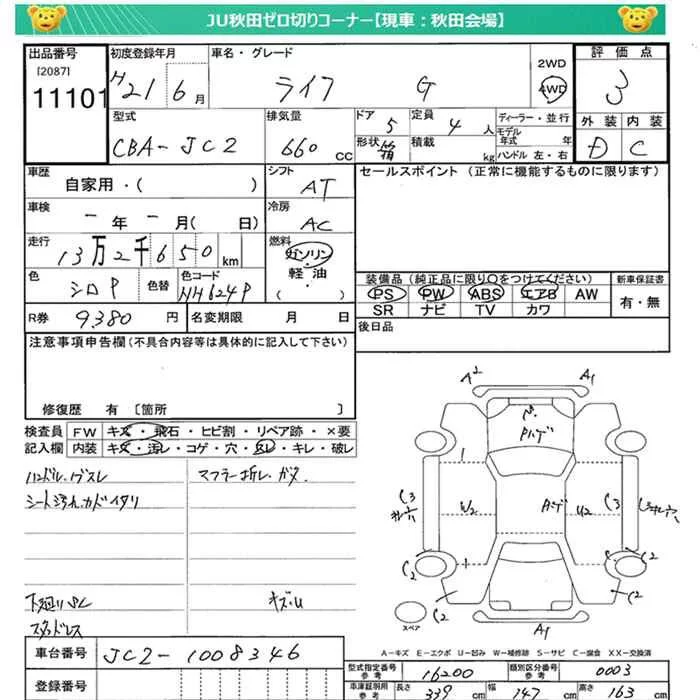 JU秋田ゼロ切りコーナー【現車：秋田会場】
出品番号
[2087]
11101
初度登録年月
H21 6月
車名・グレード
ライフ G
2WD
4WD
評価点
3
型式
CBA-JC2
排気量
660 cc
ドア
5
定員
4人
形状
箱
積載
kg
ディーラー・並行
モデル年式 年
ハンドル 左・右
外装 内装
D C
車歴
自家用・( )
シフト
AT
セールスポイント (正常に機能するものに限ります)
車検
－年－月( 日)
冷房
AC
走行
13万2千650km
燃料
ガソリン・
軽油・
( )
色
シロP
色替
色コード
NH624P
装備品 (純正品に限り〇をつけてください)
PS PW ABS エアB AW
SR ナビ TV カワ
新車保証書
有・無
R券 9380円
名変期限 月 日
後日品
注意事項申告欄 (不具合内容等は具体的に記入して下さい)
修復歴 有 〔箇所 〕
検査員
記入欄
FW キズ・飛石・ヒビ割・リペア跡・×要
内装 キズ・汚レ・コゲ・穴・スレ・キレ・破レ
ハンドル、ノブスレ
マフラー折レ、ガタ
下廻りSC
キズ・U
A2 A1
Pハゲ
C3 W2 U2 C3
C2 C2
C2 C2
A1
スペア
A－キズ E－エクボ U－凹み W－補修跡 S－サビ C－腐食 XX－交換済
車台番号 JC2-1008346
登録番号
型式指定番号 16200
類別区分番号 0003
車庫証明用参考
長さ 339cm
幅 147cm
高さ 163cm